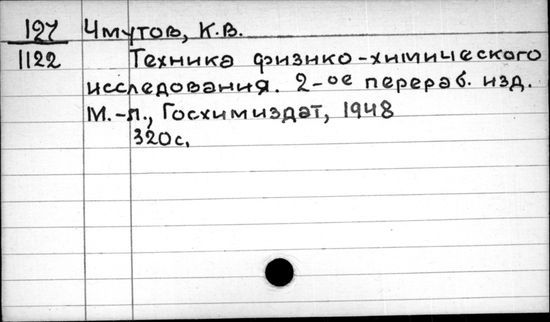 127 Чмутов, К.В.
1122 Техника физико-химического
исследования. 2-ое перераб. изд.
М.-Л., Госхимиздат, 1948
320с.